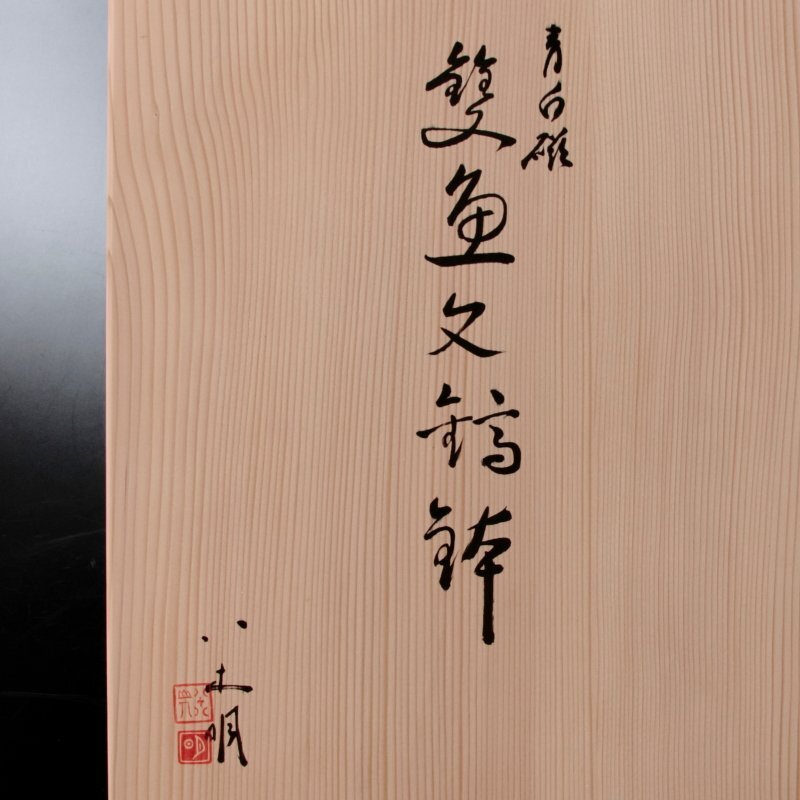 青白磁
雙魚文鎬鉢
八木明
明